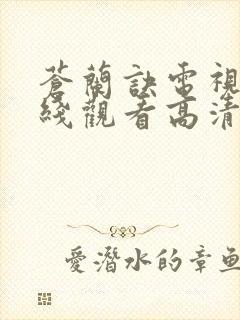 蒼蘭訣電視
綫觀看高清
愛潛水的章魚